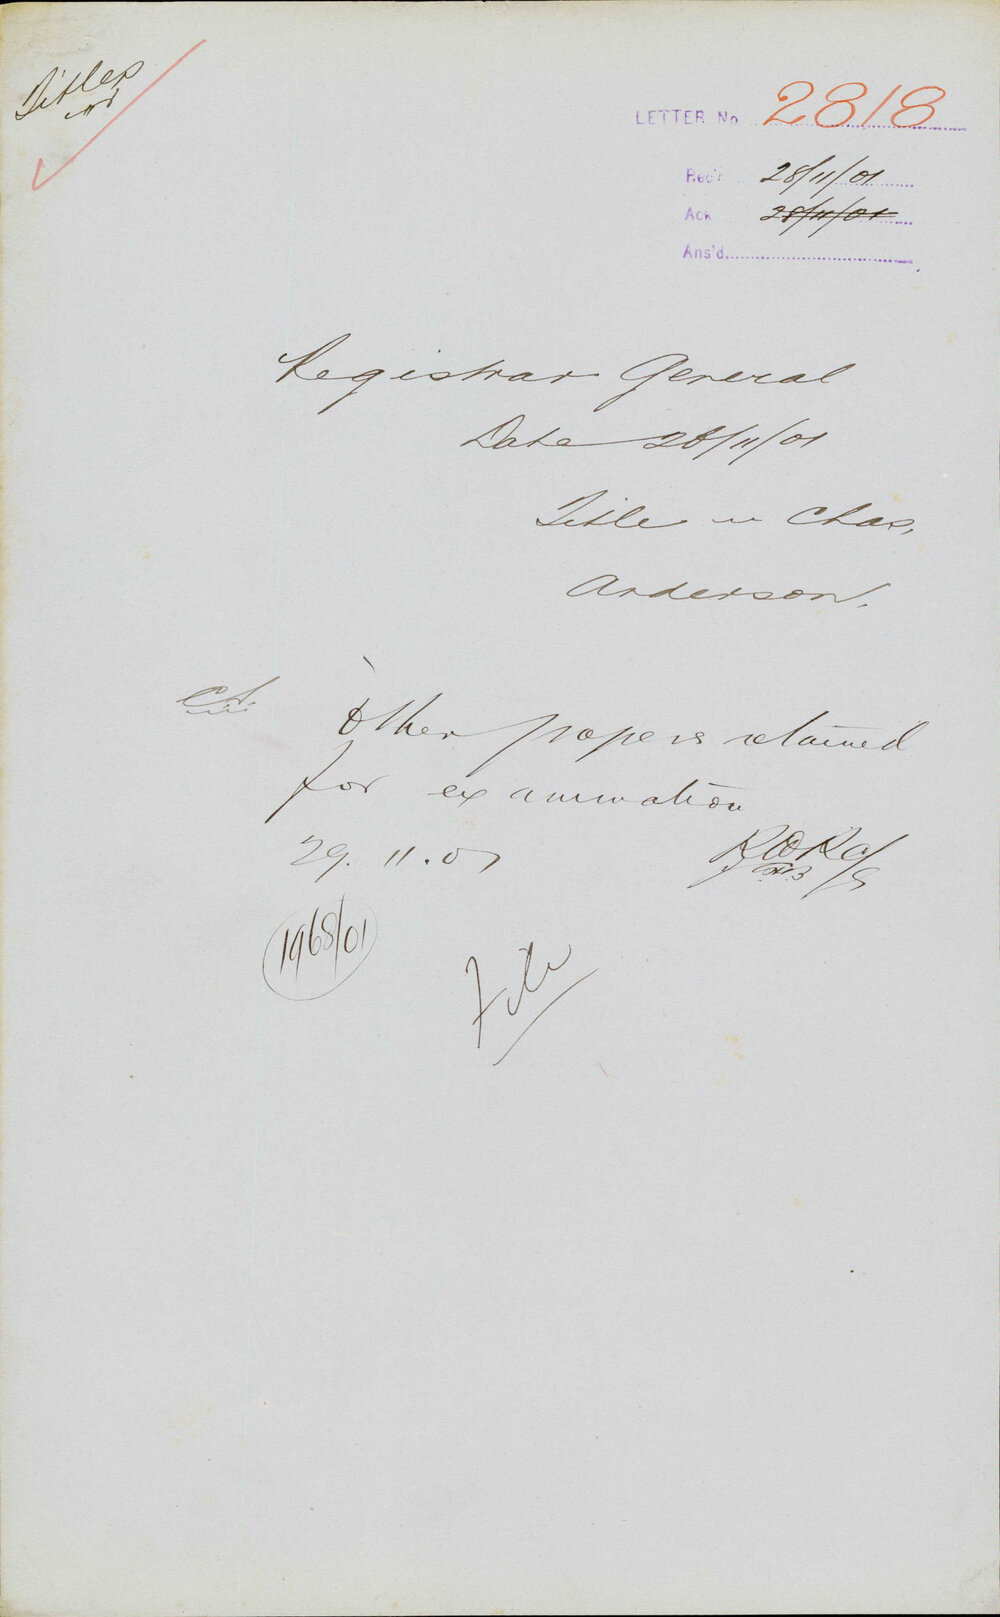 Titles
LETTER No 2818
Rec'd 28/11/01
Ack 28/11/01
Ans'd
Registrar General
Date 28/11/01
Title in Chas.
Anderson.
Other papers retained
for examination
29.11.01
1968/01
File